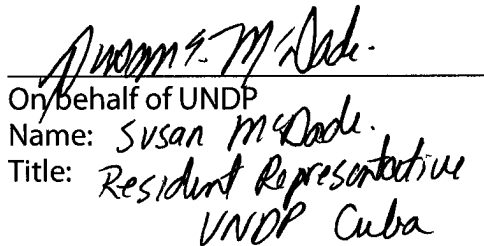 Susan E. McDade.
On behalf of UNDP
Name: Susan McDade.
Title: Resident Representative
UNDP Cuba